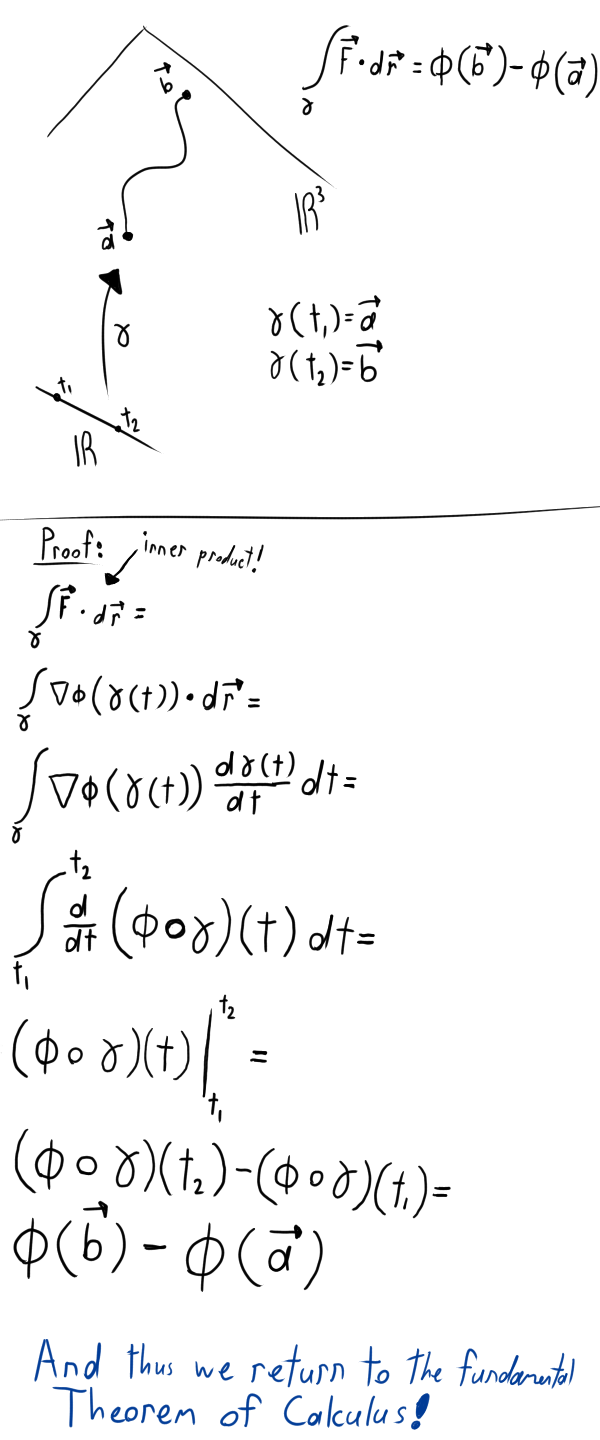 ∫_γ F⃗ · dr⃗ = ϕ(b⃗) - ϕ(a⃗)
b⃗
ℝ³
a⃗
γ
γ(t₁)=a⃗
γ(t₂)=b⃗
t₁
t₂
ℝ
Proof: inner product!
∫_γ F⃗ · dr⃗ =
∫_γ ∇ϕ(γ(t)) · dr⃗ =
∫_γ ∇ϕ(γ(t)) dγ(t)/dt dt =
∫_{t₁}^{t₂} d/dt (ϕ∘γ)(t) dt =
(ϕ∘γ)(t) |_{t₁}^{t₂} =
(ϕ∘γ)(t₂)-(ϕ∘γ)(t₁)=
ϕ(b⃗) - ϕ(a⃗)
And thus we return to the fundamental
Theorem of Calculus!